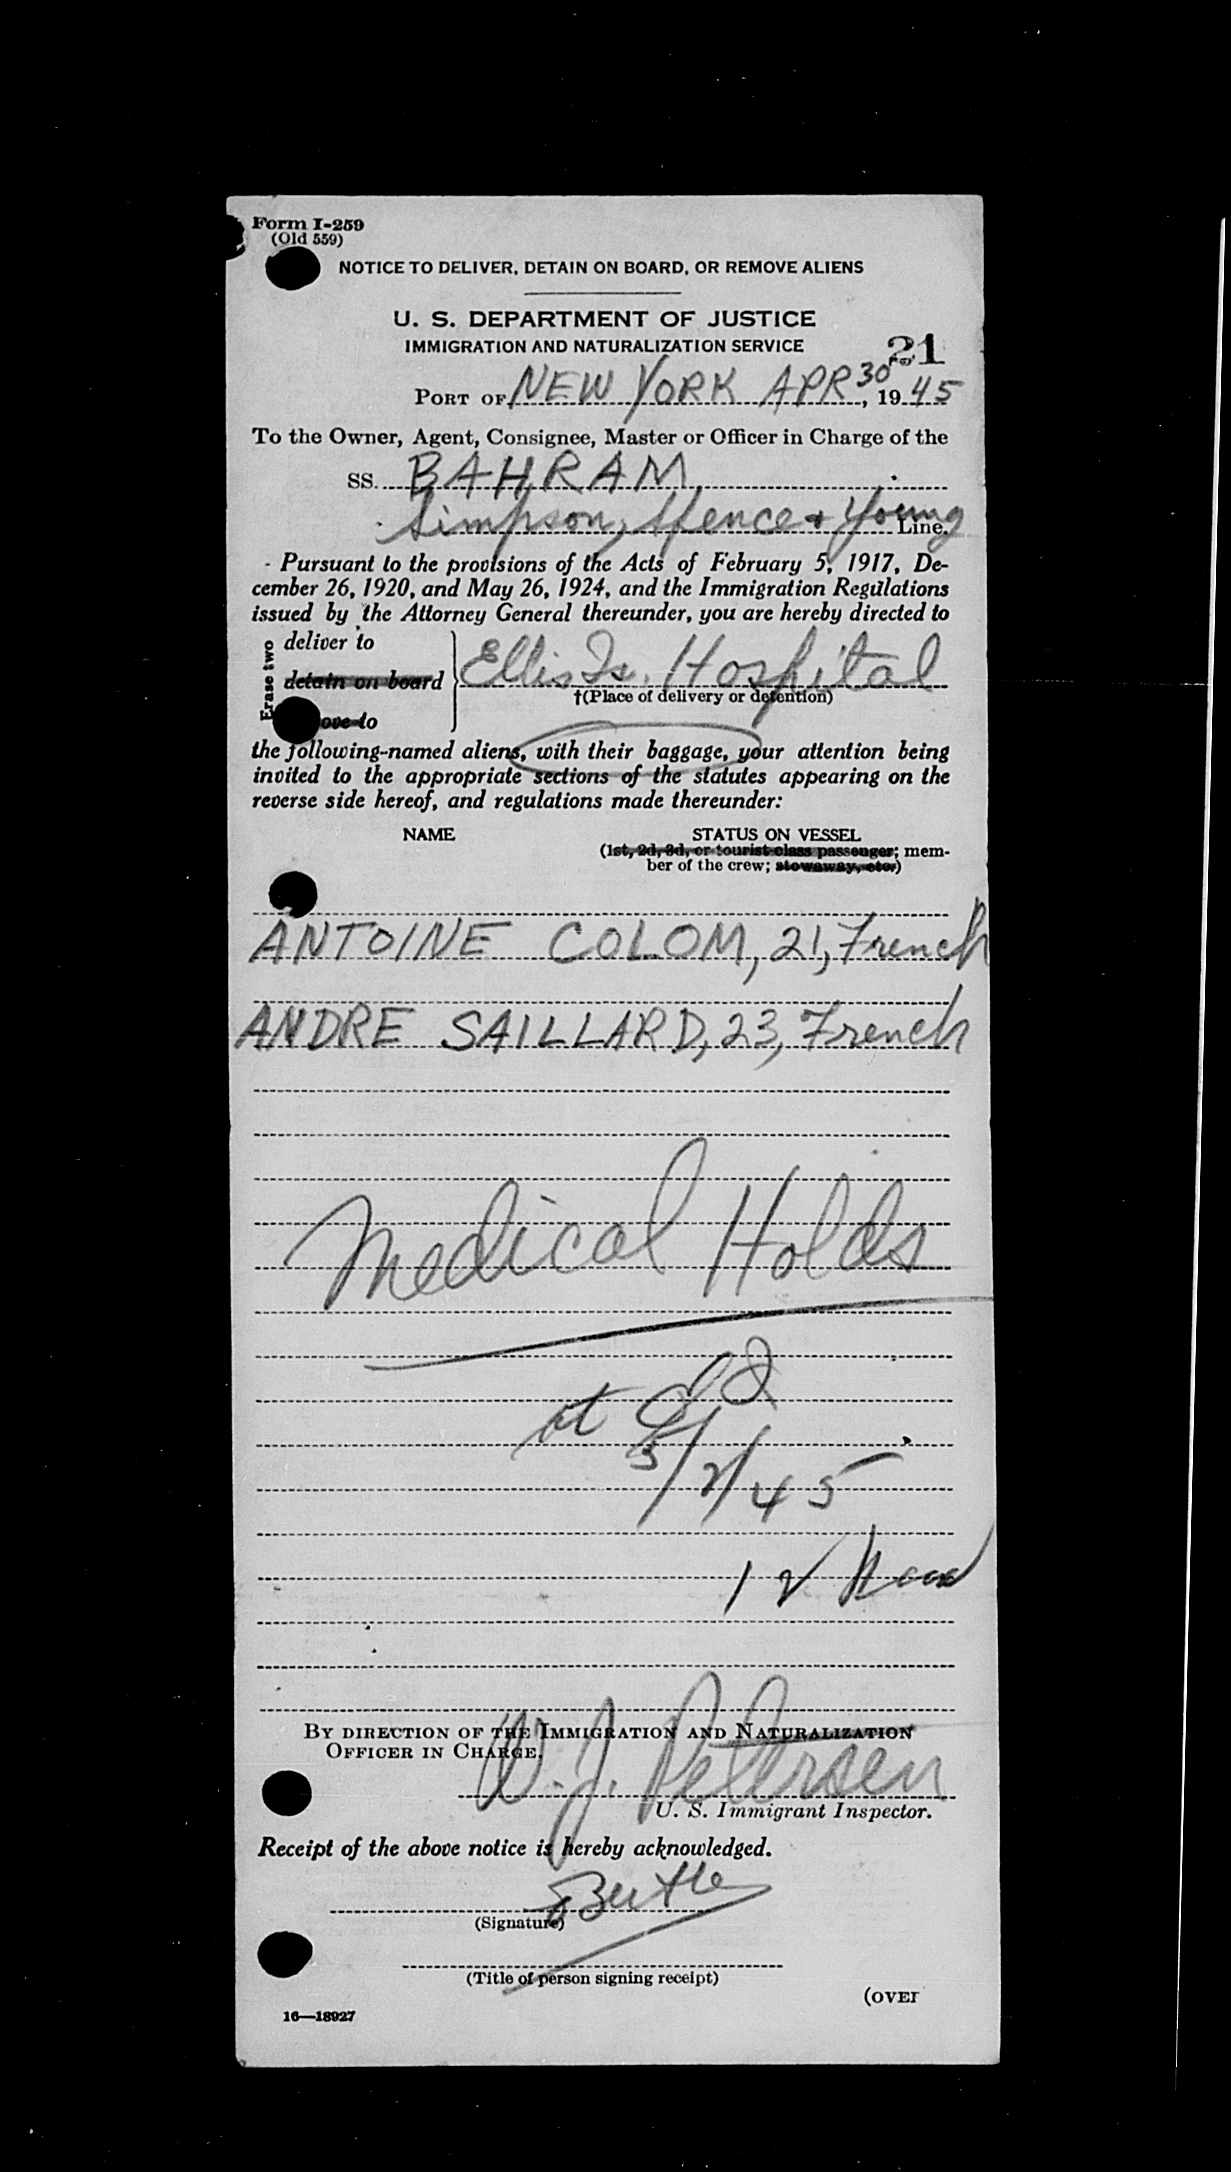 Form I-259
(Old 559)
NOTICE TO DELIVER, DETAIN ON BOARD, OR REMOVE ALIENS
U. S. DEPARTMENT OF JUSTICE
IMMIGRATION AND NATURALIZATION SERVICE
21
PORT OF NEW YORK APR 30, 1945
To the Owner, Agent, Consignee, Master or Officer in Charge of the
SS. BAHRAM
Simpson, Spence & Young Line.
Pursuant to the provisions of the Acts of February 5, 1917, De-
cember 26, 1920, and May 26, 1924, and the Immigration Regulations
issued by the Attorney General thereunder, you are hereby directed to
Erase two
deliver to
detain on board
Ellis Is. Hospital
†(Place of delivery or detention)
ove to
the following-named aliens, with their baggage, your attention being
invited to the appropriate sections of the statutes appearing on the
reverse side hereof, and regulations made thereunder:
NAME STATUS ON VESSEL
(1st, 2d, 3d, or tourist-class passenger; mem-
ber of the crew; stowaway, etc.)
ANTOINE COLOM, 21, French
ANDRE SAILLARD, 23, French
Medical Holds
at
5/2/45
12
BY DIRECTION OF THE IMMIGRATION AND NATURALIZATION
OFFICER IN CHARGE.
W. J. Petersen
U. S. Immigrant Inspector.
Receipt of the above notice is hereby acknowledged.
(Signature)
(Title of person signing receipt)
(OVER
16—18927